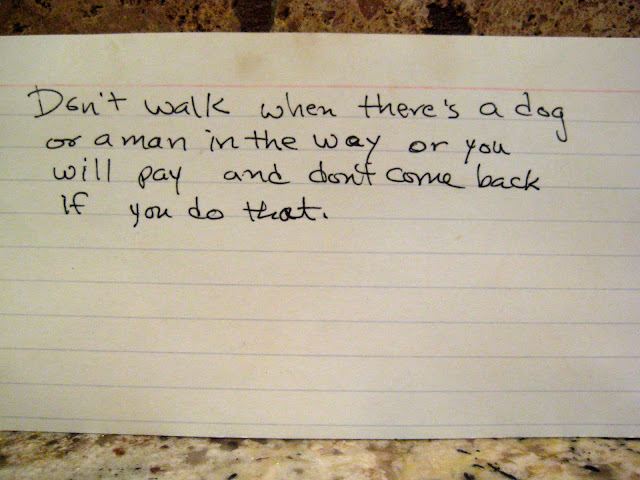 Don't walk when there's a dog
or a man in the way or you
will pay and don't come back
If you do that.